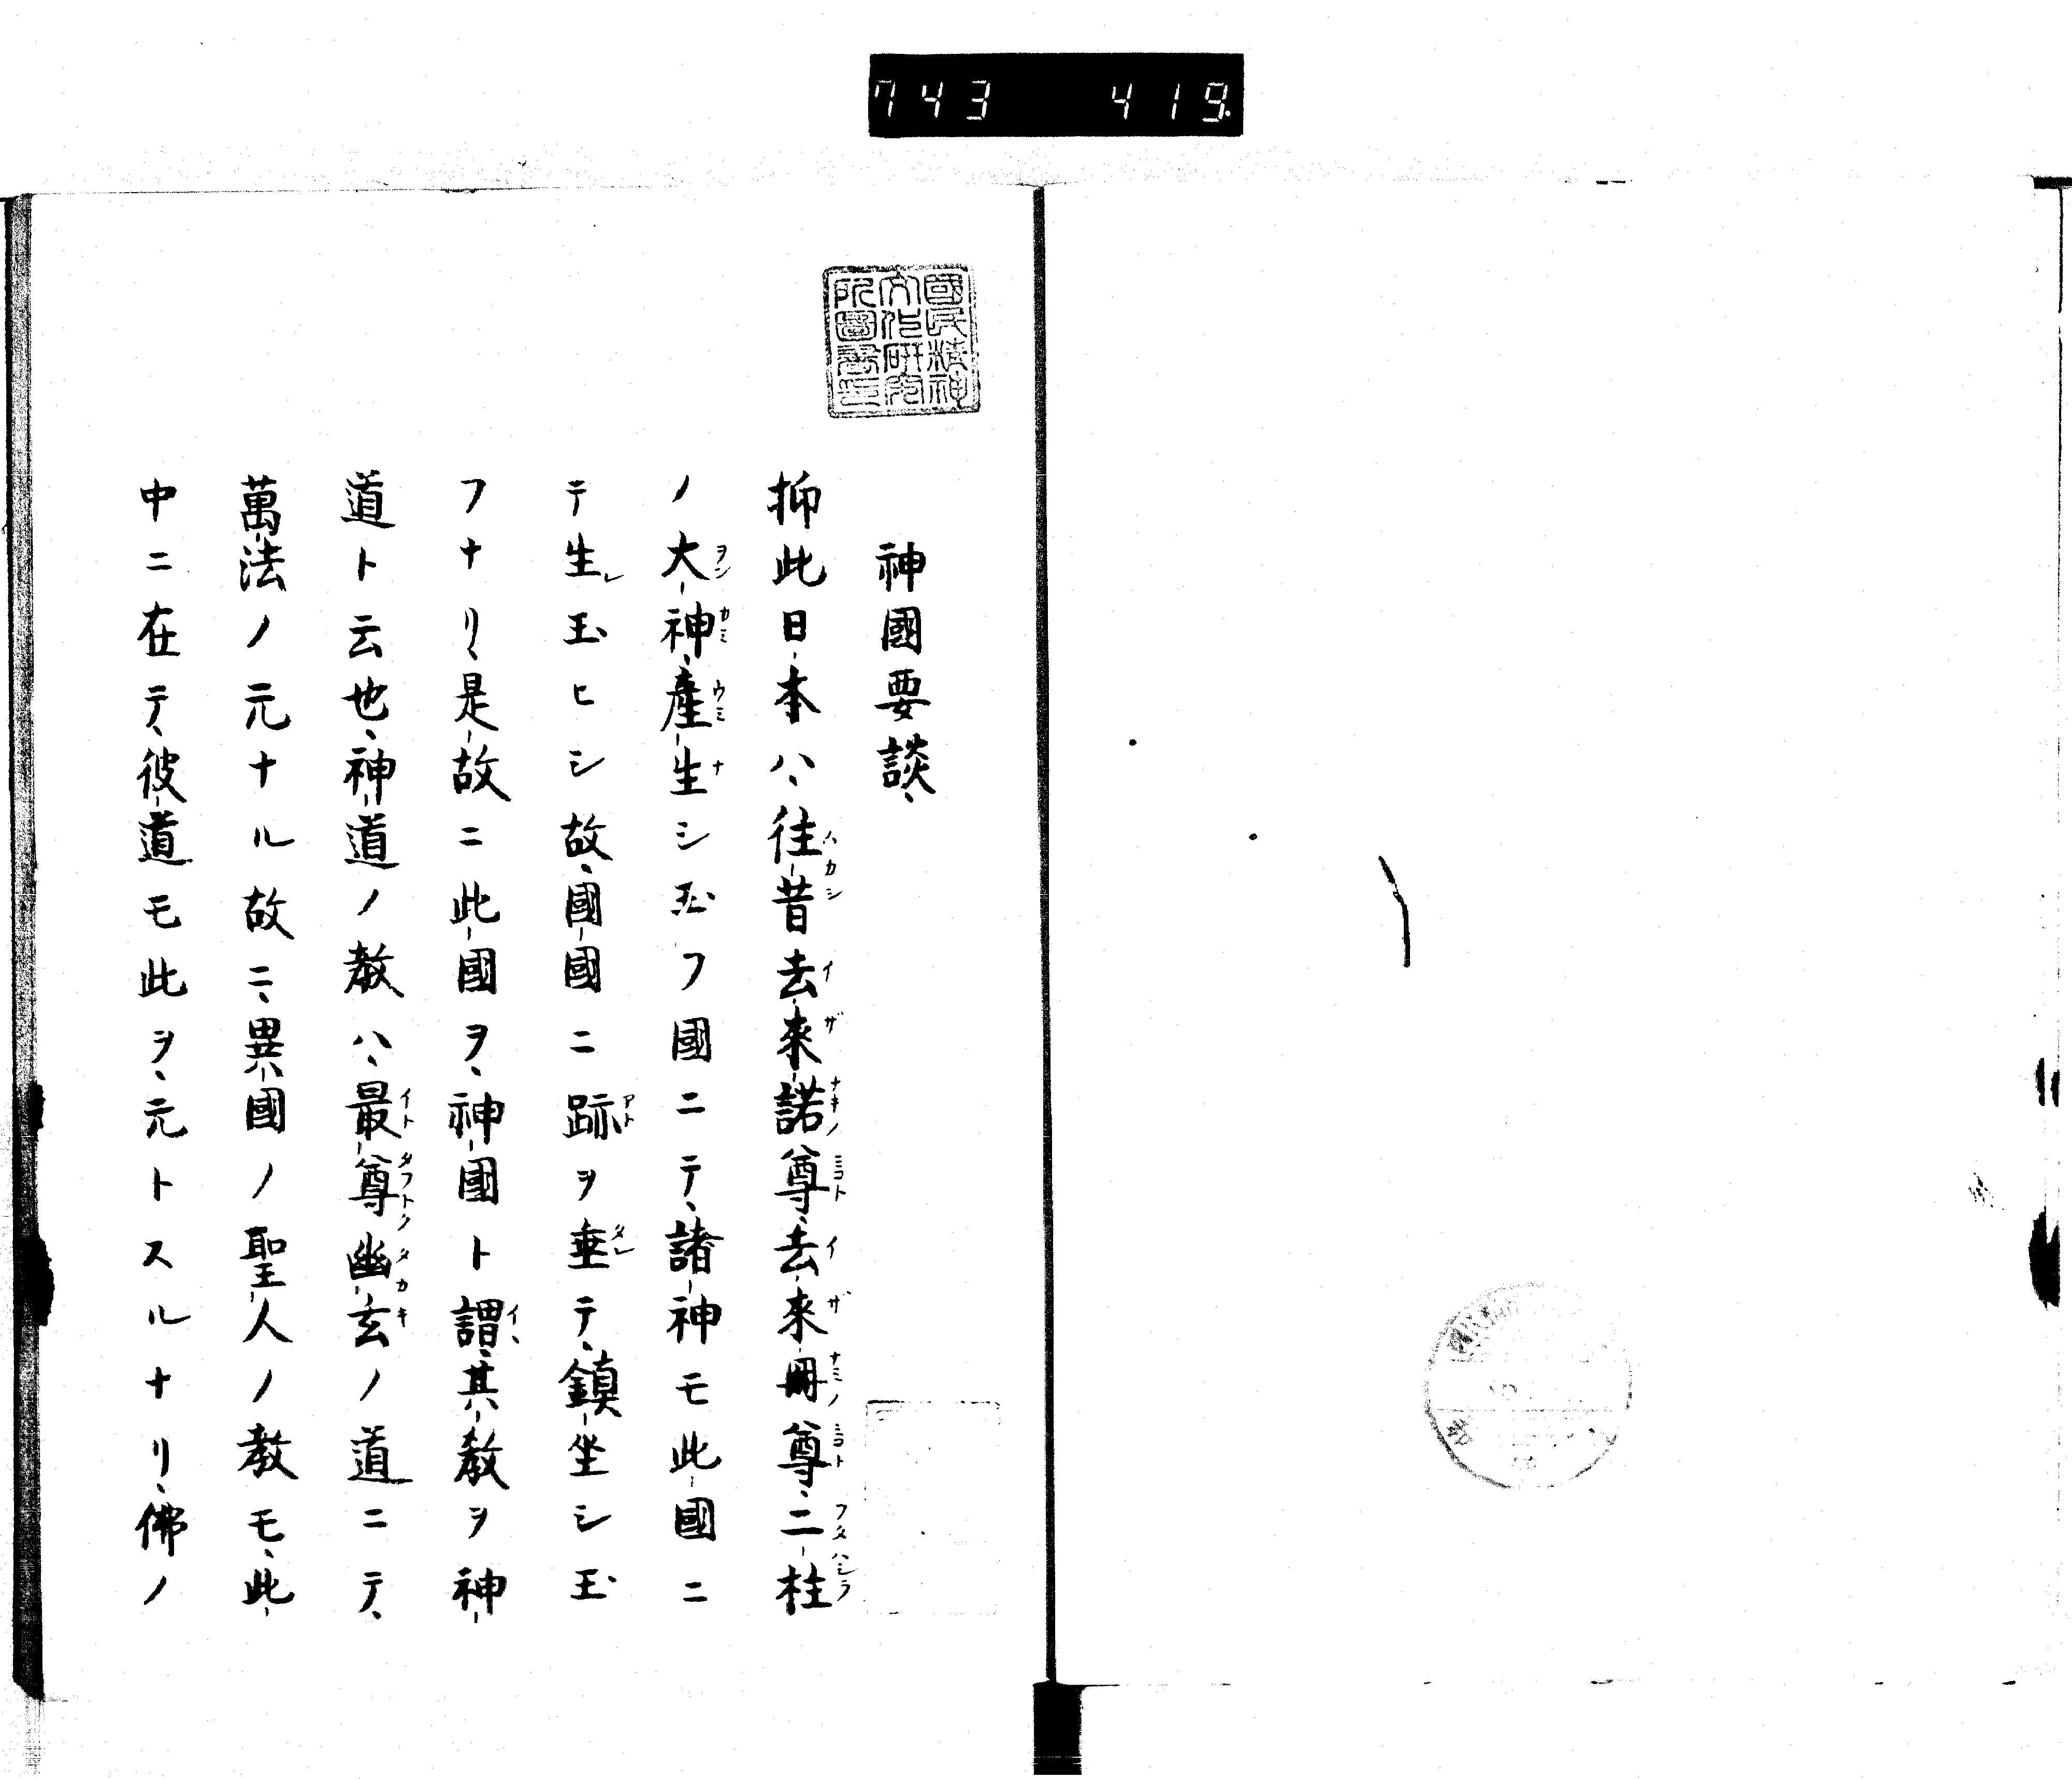 743 419
國民精神
文化研究
所圖書印
神國要談、
抑此日本ハ、往昔去來諾尊、去來冊尊、二柱
ノ大神、產生シ玉フ國ニテ、諸神モ此國ニ
テ生レ玉ヒシ故、國國ニ跡ヲ垂テ、鎮坐シ玉
フナリ、是故ニ此國ヲ、神國ト謂、其教ヲ神
道ト云也、神道ノ教ハ、最尊幽玄ノ道ニテ、
萬法ノ元ナル故ニ、異國ノ聖人ノ教モ、此
中ニ在テ、彼道モ此ヲ、元トスルナリ、佛ノ